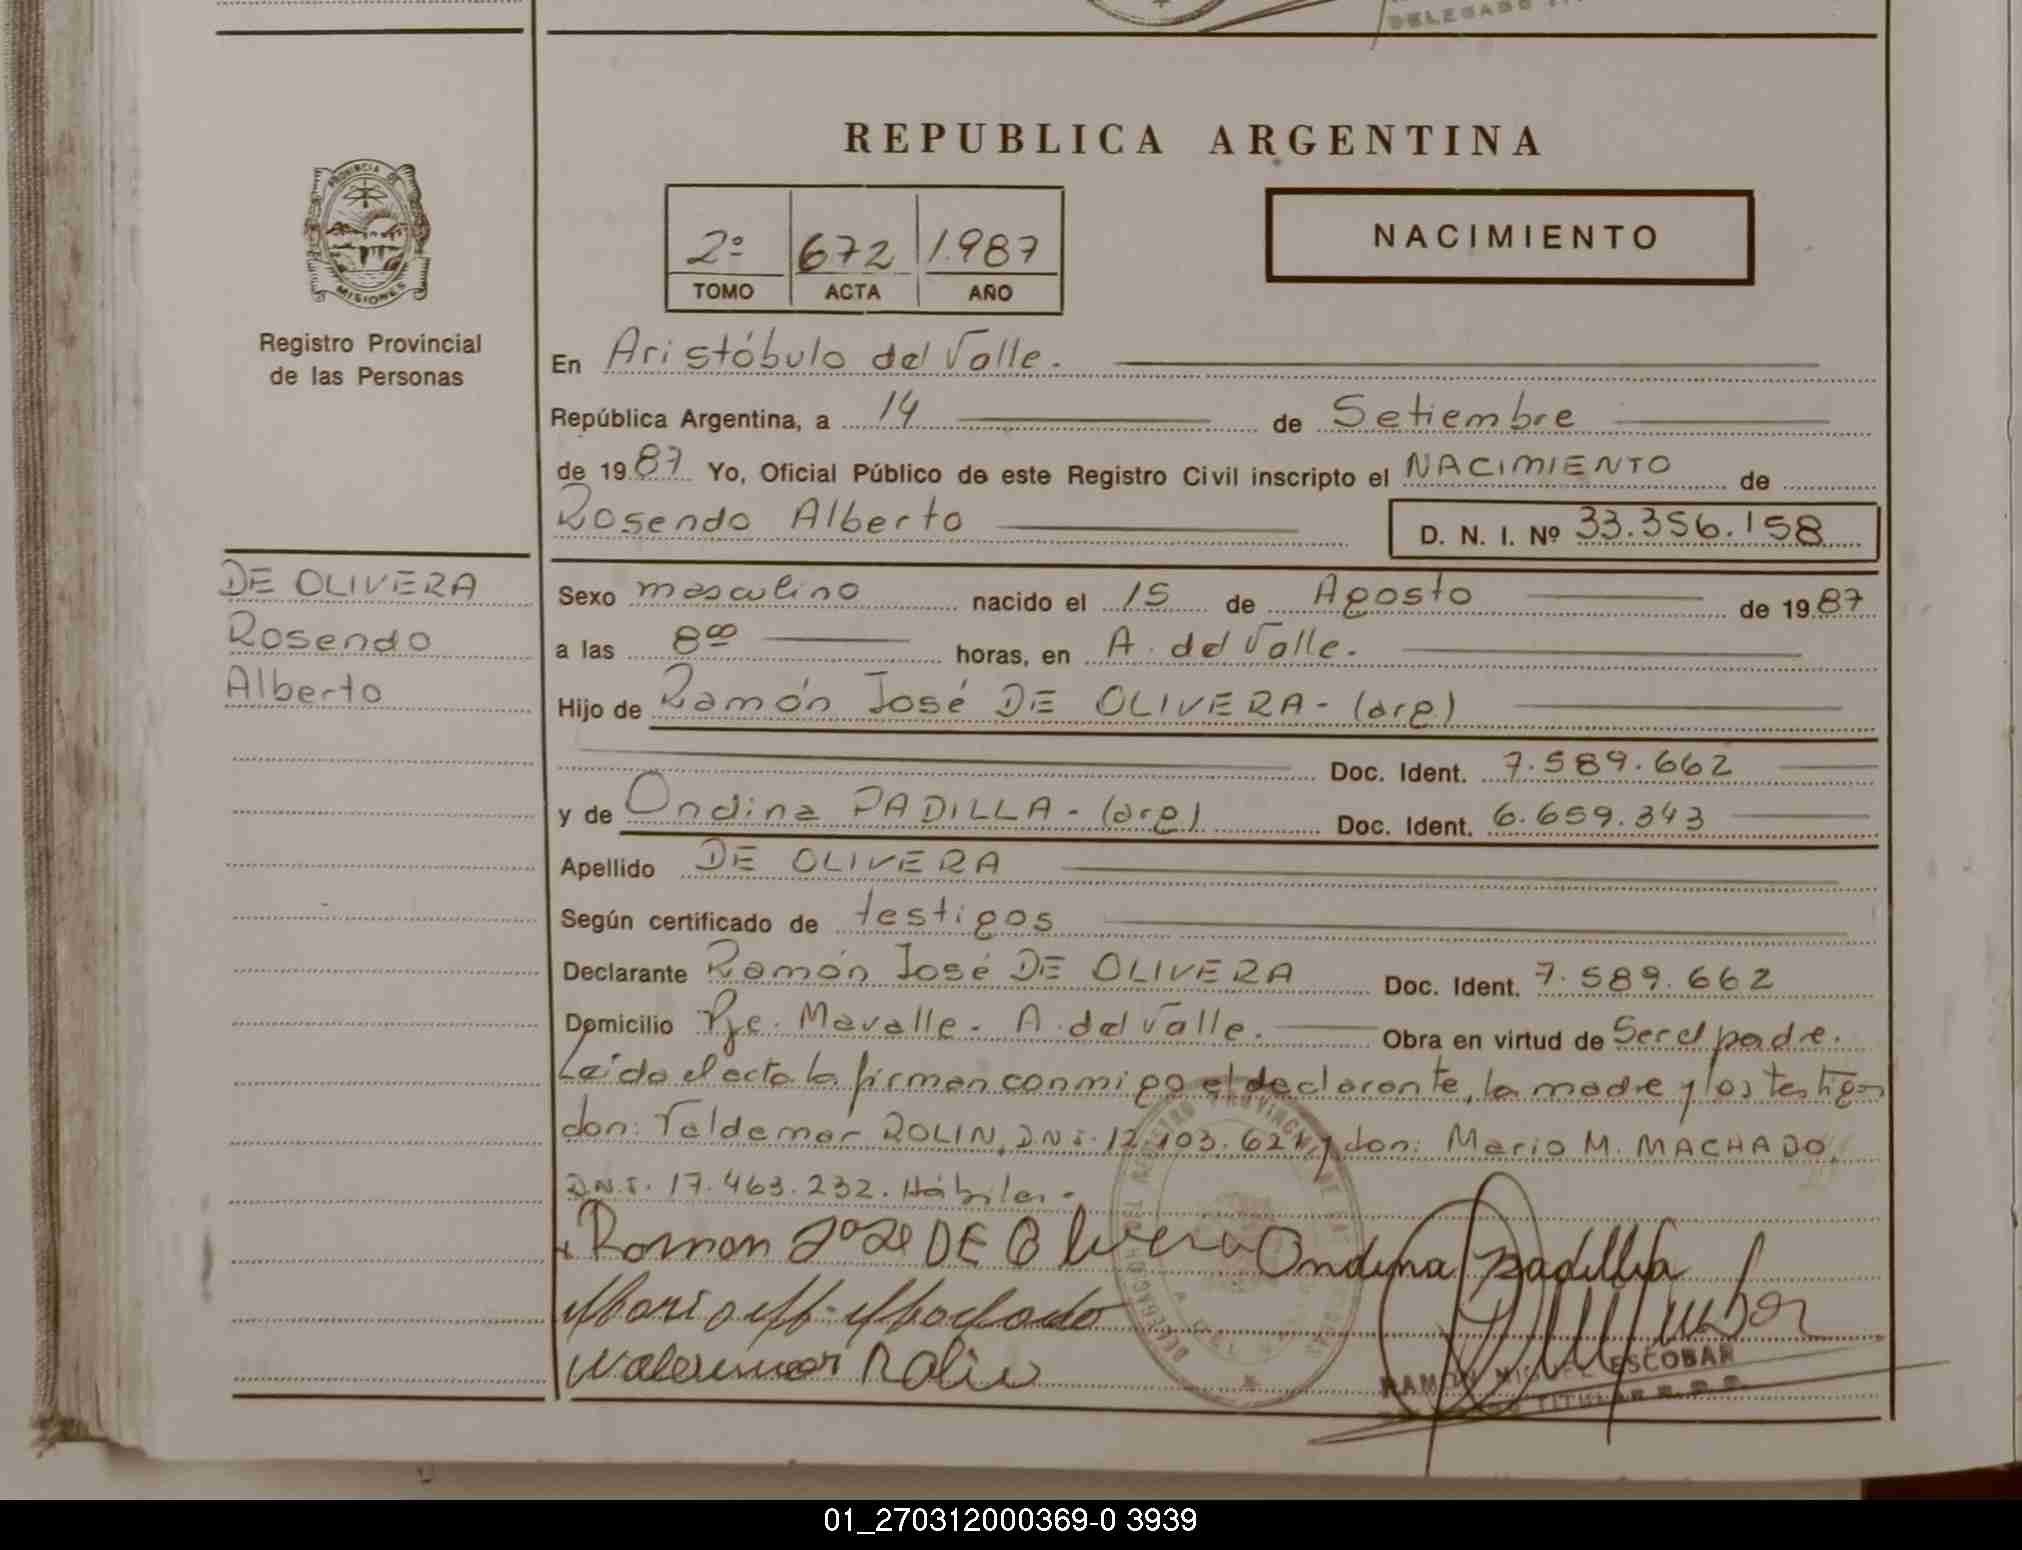 DELEGADO
REPUBLICA ARGENTINA
PROVINCIA DE
MISIONES
Registro Provincial
de las Personas
2º 672 1.987
TOMO ACTA AÑO
NACIMIENTO
En Aristóbulo del Valle.
República Argentina, a 14 de Setiembre
de 1987 Yo, Oficial Público de este Registro Civil inscripto el NACIMIENTO de
Rosendo Alberto D. N. I. Nº 33.356.158
DE OLIVERA
Rosendo
Alberto
Sexo masculino nacido el 15 de Agosto de 1987
a las 8⁰⁰ horas, en A. del Valle.
Hijo de Ramón José DE OLIVERA - (arg)
Doc. Ident. 7.589.662
y de Ondina PADILLA - (arg) Doc. Ident. 6.659.343
Apellido DE OLIVERA
Según certificado de testigos
Declarante Ramón José DE OLIVERA Doc. Ident. 7.589.662
Domicilio Pje. Mavalle - A. del Valle. Obra en virtud de Ser el padre.
Leída el acta la firman conmigo el declarante, la madre y los testigos
don: Valdemar ROLIN, D.N.I. 12.103.621 y don: Mario M. MACHADO,
D.N.I. 17.463.232. Hábiles.-
Ramon Jose DE Olivera Ondina Padilla
Mario M. Machado
Waldemar Rolin
RAMON MIGUEL ESCOBAR
TITULAR R. P. P.
01_270312000369-0 3939